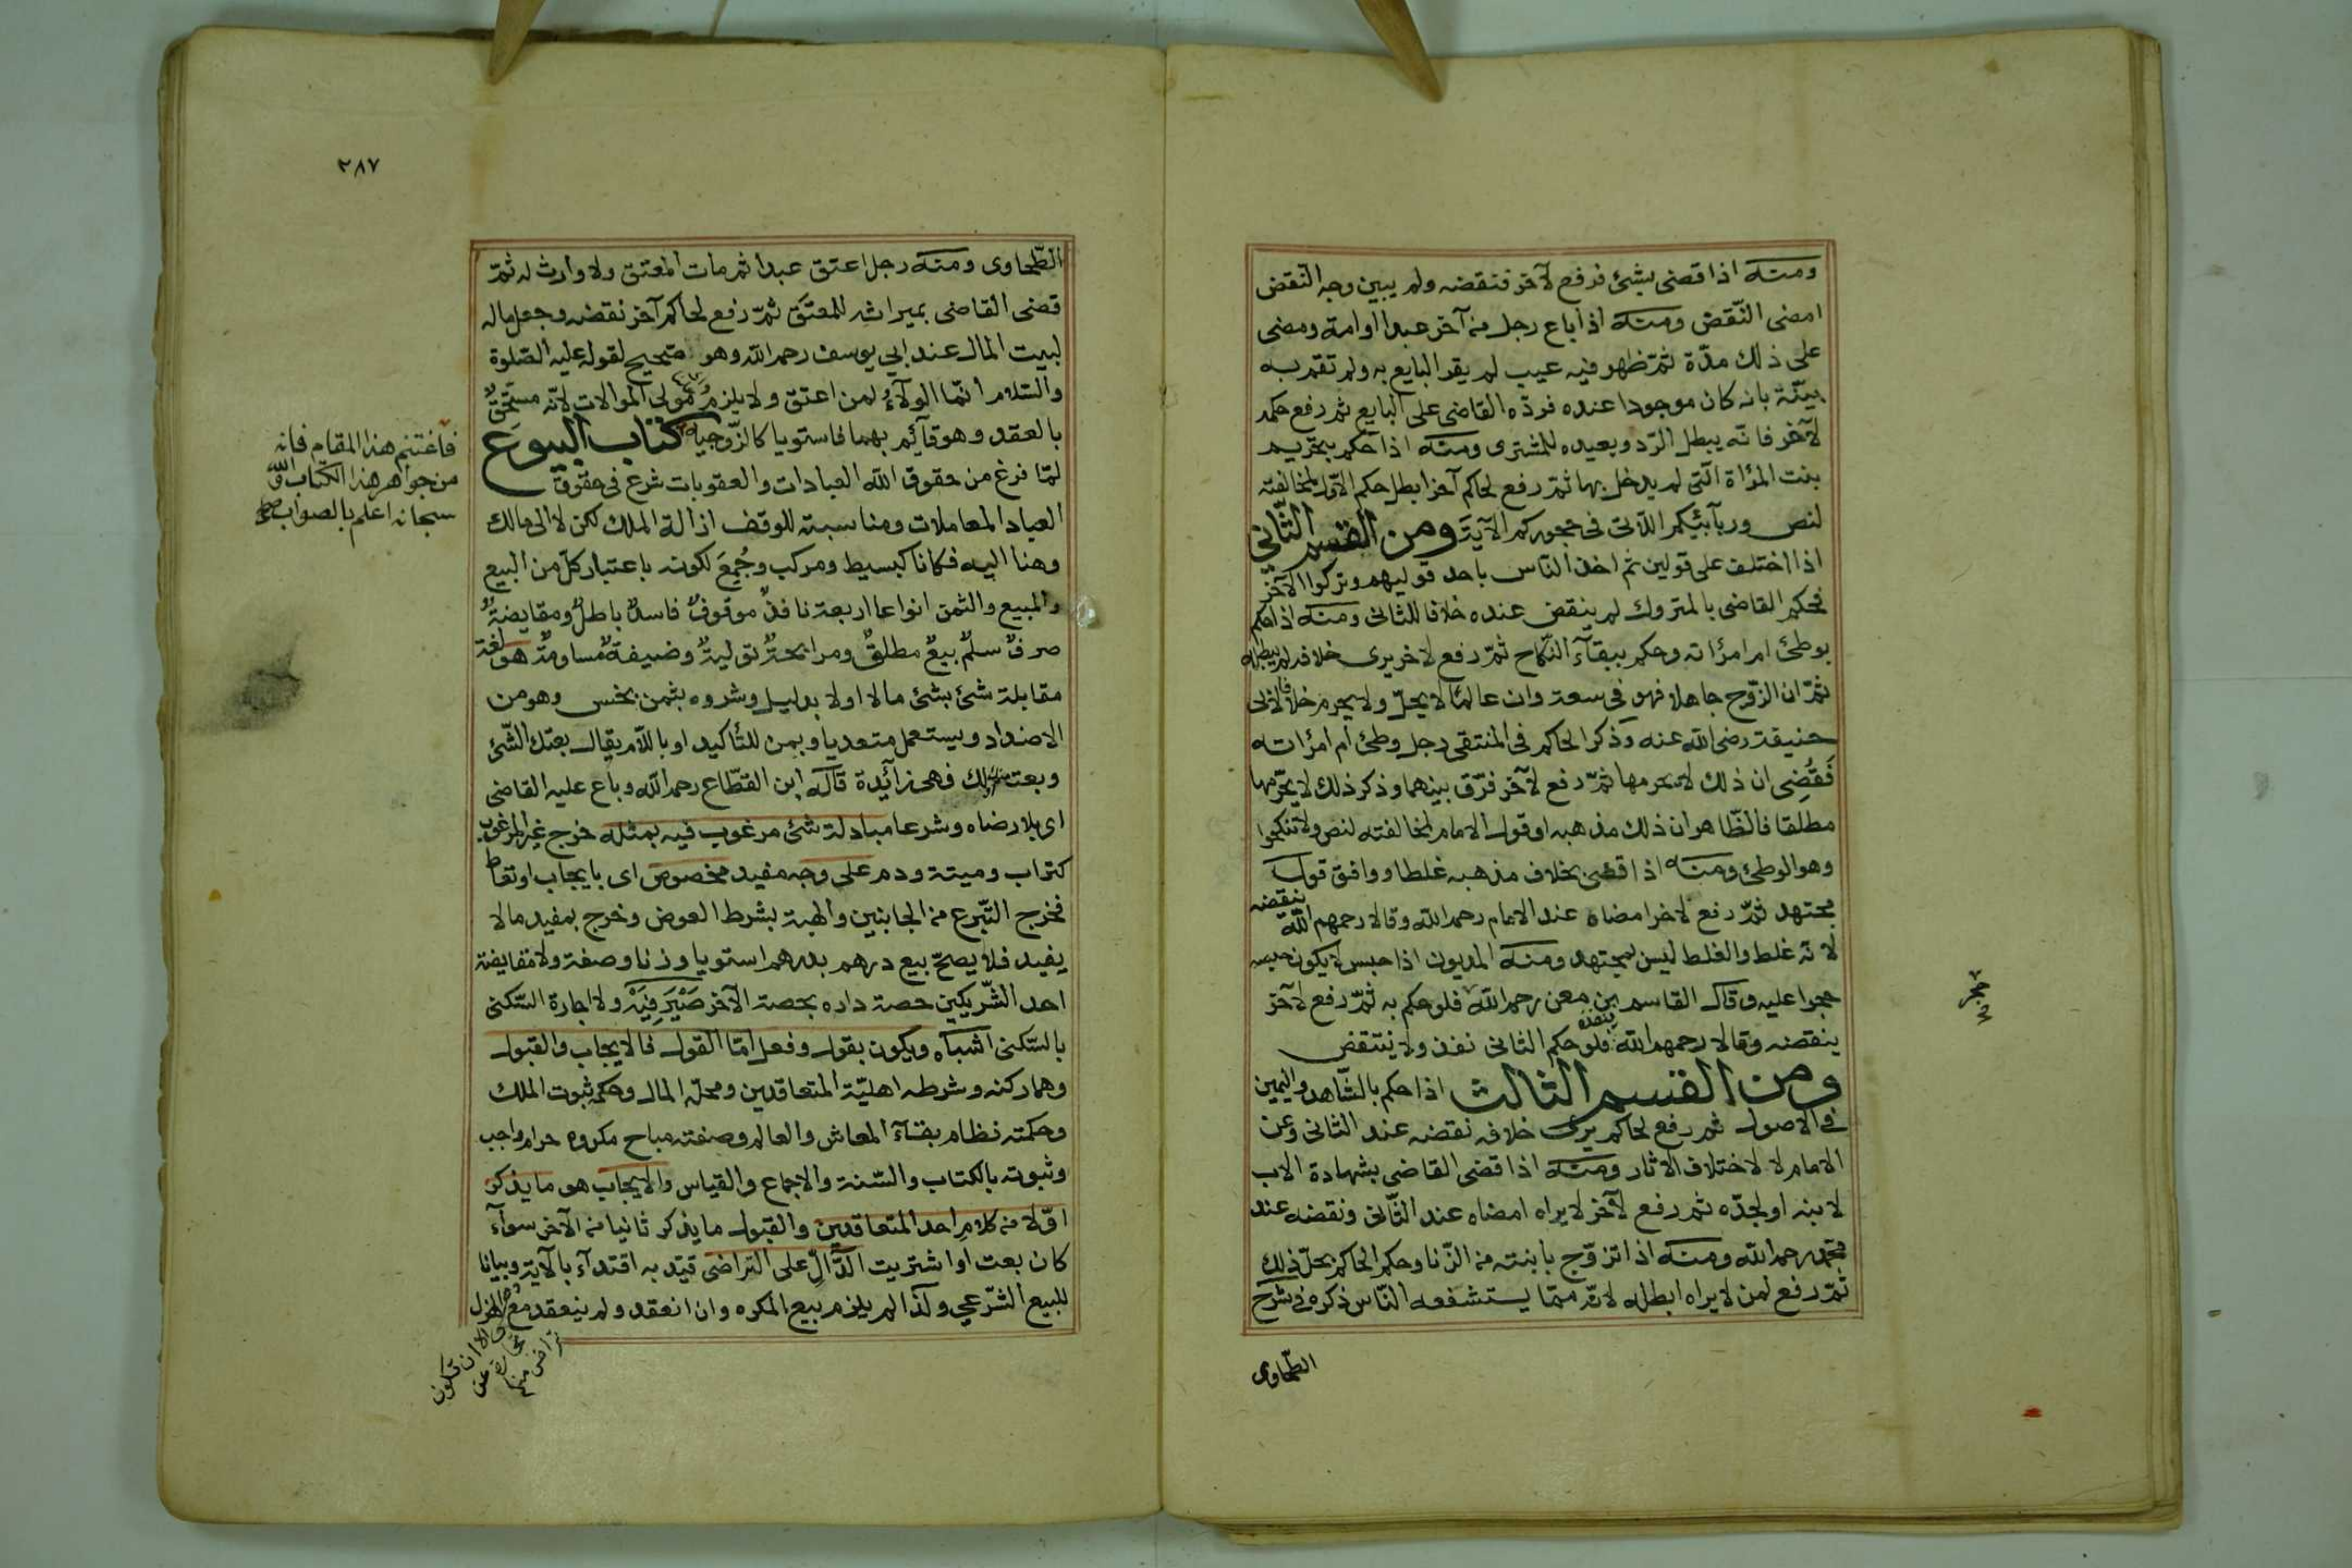 ومنه اذا قضى بشئ فرفع لآخر فنقضه ولم يبين وجه النقض
امضى النّقض ومنه اذا باع رجل من آخر عبدا او امة ومضى
على ذلك مدّة ثمّ ظهر فيه عيب لم يقر البايع به ولم تقم به
بيّنة بانه كان موجودا عنده فردّه القاضى على البايع ثم رفع حكمه
لآخر فانّه يبطل الرّد ويعيده للمشترى ومنه اذا حكم بتحريم
بنت المرأة الّتى لم يدخل بها ثمّ رفع لحاكم آخر ابطل حكم الاوّل لمخالفته
لنص وربآئبكم اللآتى فى حجوركم الآية ومن القسم الثّانى
اذا اختلف على قولين ثم اخذ النّاس باحد قوليهم وتركوا الآخر
فحكم القاضى بالمتروك لم ينقض عنده خلافا للثانى ومنه اذا حكم
بوطئ ام امرأته وحكم ببقآء النّكاح ثمّ رفع لاخر يرى خلافه لم يبطله
ثمّ ان الزّوج جاهلا فهو فى سعة وان عالما لا يحلّ ولا يحرم خلافا لابى
حنيفة رضى الله عنه وذكر الحاكم فى المنتقى رجل وطئ ام امرأته
فقُضِى ان ذلك لا يحرمها ثمّ رفع لآخر فرّق بينهما وذكر ذلك لا يحرّمها
مطلقا فالظّاهر ان ذلك مذهبه او قول الامام لمخالفته لنص ولا تنكحوا
وهو الوطئ ومنه اذا قضى بخلاف مذهبه غلطا ووافق قول
مجتهد ثمّ رفع لاخر امضاه عند الامام رحمه الله وقالا رحمهم الله ينقضه
لانّه غلط والغلط ليس بمجتهد ومنه المديون اذا حبس لا يكون حبسه
حجرا عليه وقال القاسم بن معن رحمه الله فلو حكم به ثمّ رفع لآخر
ينقضه وقالا رحمهم الله ينفذه فلو حكم الثانى نفذ ولا ينتقض
ومن القسم الثالث اذا حكم بالشّاهد واليمين
فى الاصول ثم رفع لحاكم يرى خلافه نقضه عند الثانى وعن
الامام لا لاختلاف الاثار ومنه اذا قضى القاضى بشهادة الاب
لابنه او لجدّه ثم رفع لآخر لا يراه امضاه عند الثّانى ونقضه عند
محمد رحمه الله ومنه اذا تزوّج بابنته من الزّنا وحكم الحاكم بحلّ ذلك
ثمّ رفع لمن لا يراه ابطله لانّه ممّا يستشفعه النّاس ذكره فى شرح
الطّحاوى
حجر
٢٨٧
الطّحاوى ومنه رجل اعتق عبدا ثم مات المعتق ولا وارث له ثمّ
قضى القاضى بميراثه للمعتَق ثمّ رفع لحاكم آخر نقضه وجعل ماله
لبيت المال عند ابي يوسف رحمه الله وهو صحيح لقوله عليه الصّلوة
والسّلام انّما الولآء لمن اعتق ولا يلزم مولى الموالات لانّه مستحقّ
بالعقد وهو قآئم بهما فاستويا كالزّوجية كتاب البيوع
لمّا فرغ من حقوق الله العبادات والعقوبات شرع فى حقوق
العباد المعاملات ومناسبته للوقف ازالة الملك لكن لا الى مالك
وهنا اليه فكانا كبسيط ومركب وجُمِعَ لكونه باعتبار كلّ من البيع
والمبيع والثمن انواعا اربعة نافذٌ موقوفٌ فاسدٌ باطلٌ ومقايضةٌ
صرفٌ سلمٌ بيعٌ مطلقٌ ومرابحةٌ توليةٌ وضيفةٌ مساومةٌ هو لغة
مقابلة شئ بشئ مالا او لا بدليل وشروه بثمن بخس وهو من
الاضداد ويستعمل متعديا وبمن للتأكيد او باللام يقال بعتك الشّئ
وبعته لك فهى زآئدة قاله ابن القطّاع رحمه الله وباع عليه القاضى
اى بلا رضاه وشرعا مبادلة شئ مرغوب فيه بمثله خرج غير المرغوب
كتراب وميتة ودم على وجه مفيد مخصوص اى بايجاب او تعاط
فخرج التّبرع من الجانبين والهبة بشرط العوض وخرج بمفيد مالا
يفيد فلا يصحّ بيع درهم بدرهم استويا وزنا وصفة ولا مقايضة
احد الشّريكين حصة داره بحصة الآخر صَيْرَفِيَةْ ولا اجارة السّكنى
بالسّكنى اشباه ويكون بقول وفعل امّا القول فالايجاب والقبول
وهما ركنه وشرطه اهليّة المتعاقدين ومحلّه المال وحكمه ثبوت الملك
وحكمته نظام بقآء المعاش والعالم وصفته مباح مكروه حرام واجب
وثبوته بالكتاب والسّنة والاجماع والقياس والايجاب هو ما يذكر
اوّلا من كلام احد المتعاقدين والقبول ما يذكر ثانيا من الآخر سوآء
كان بعت او اشتريت الدّالّ على التراضى قيّد به اقتدآء بالآية وبيانا
للبيع الشّرعي ولذا لم يلزم بيع المكره وان انعقد ولم ينعقد مع الهزل
فاغتنم هذا المقام فانه
من جواهر هذا الكتاب والله
سبحانه اعلم بالصواب صح
الا ان تكون
تجارة عن
تراض منكم